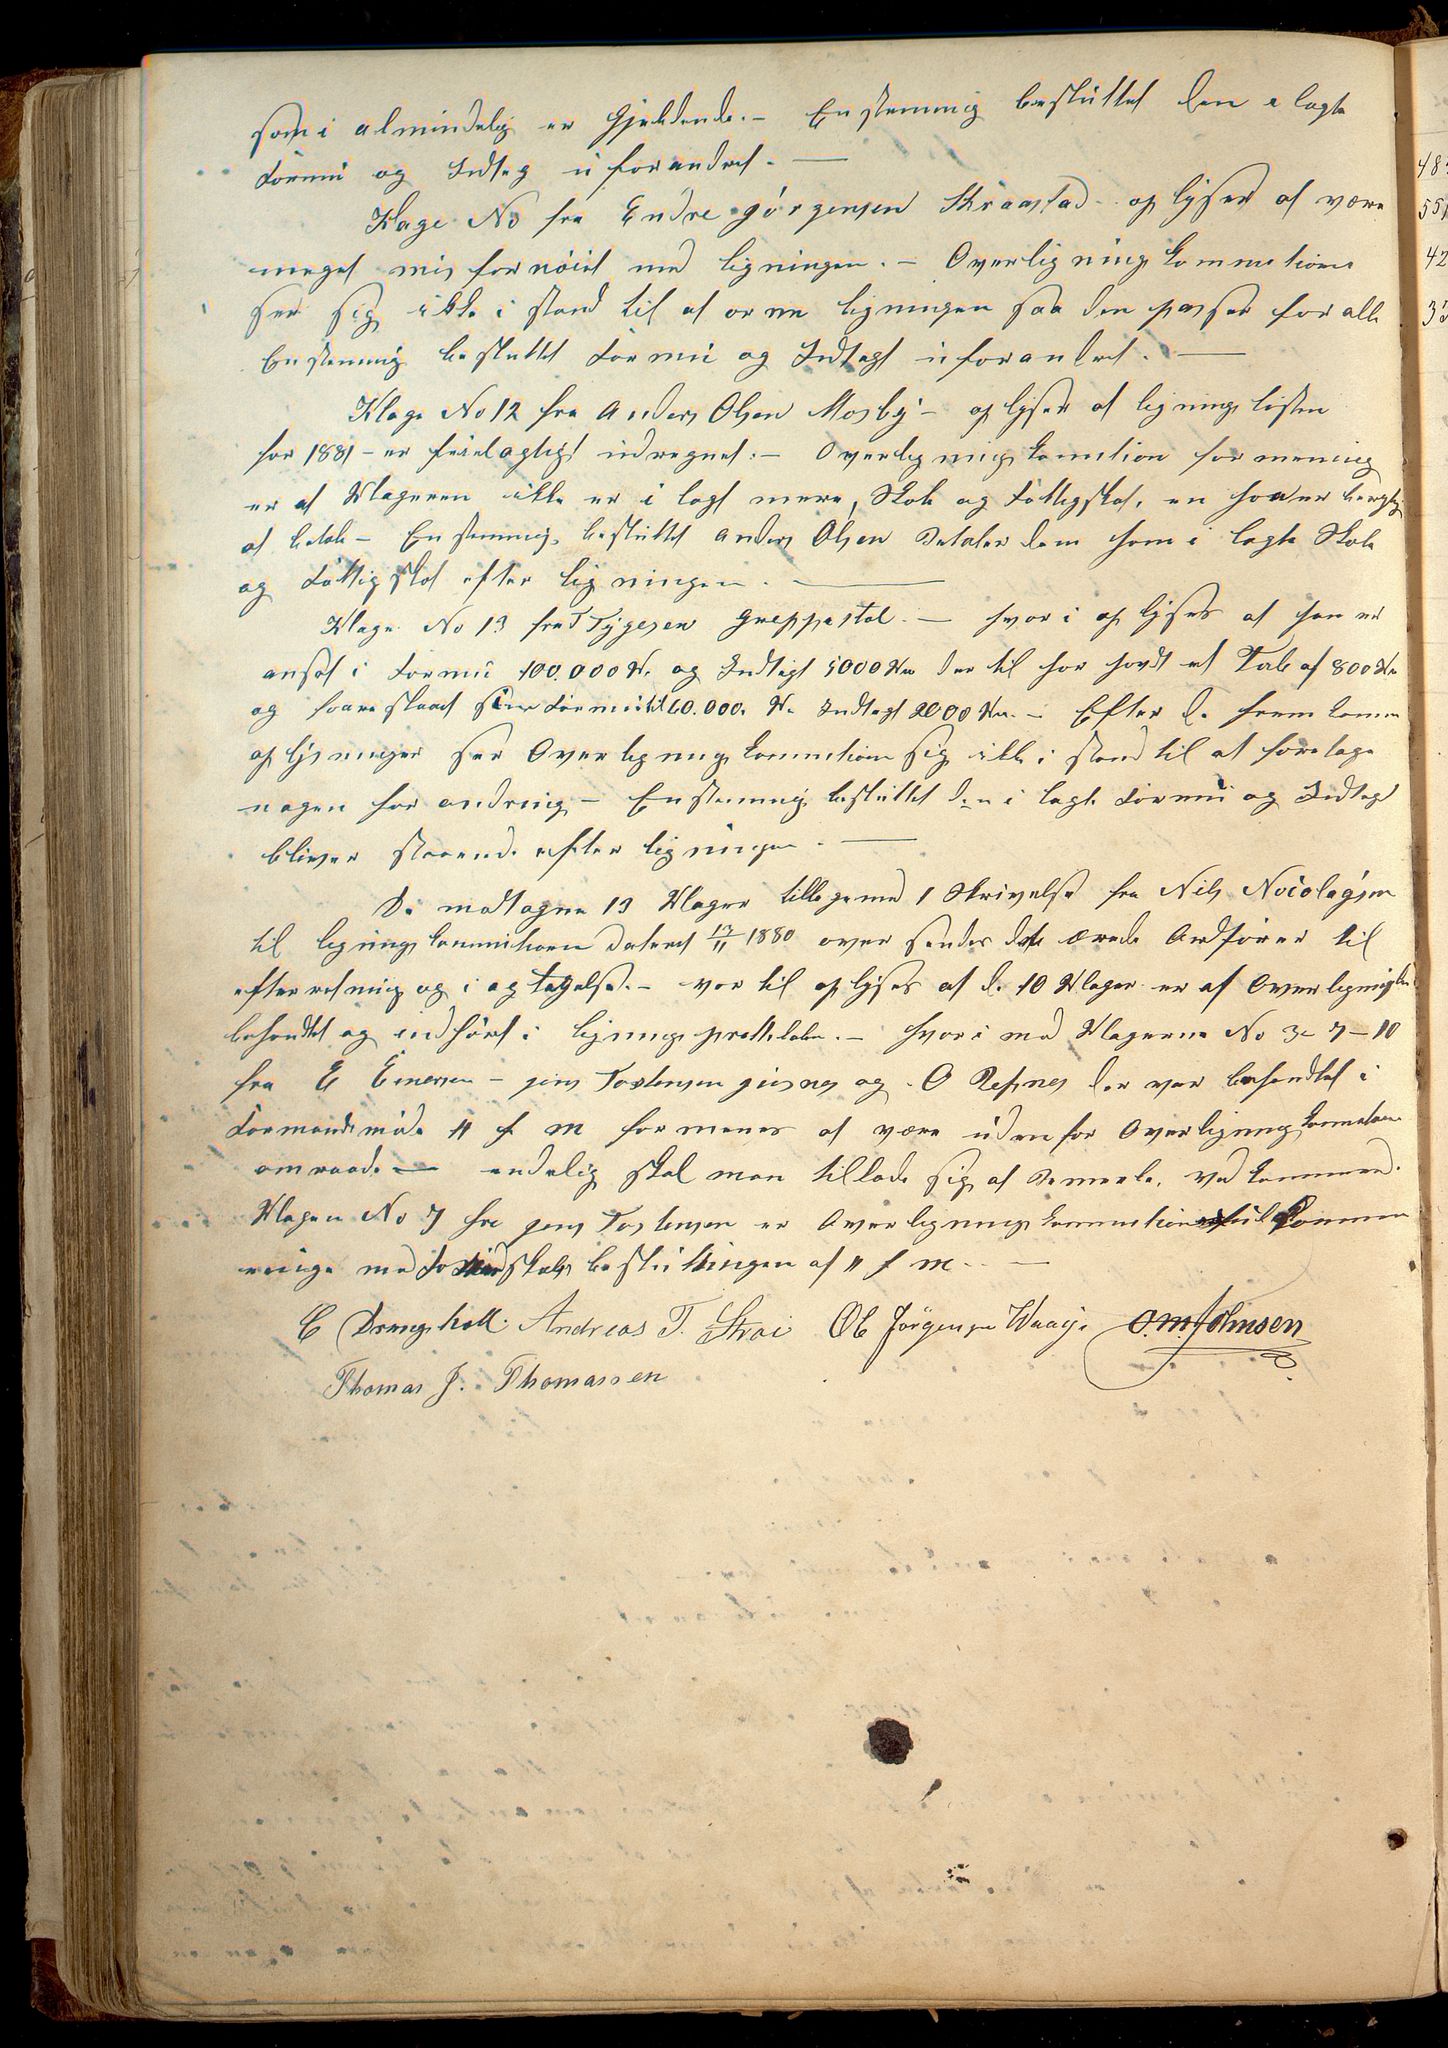 som i almindelig er Gjældende. – Enstemmig besluttet den i lagte
Formue og Indtægt uforandret. —
Klage No fra Endre Jörgensen Skraastad oplyser at være
meget misfornöiet med ligningen. – Overlignings kommitionen
ser sig ikke i stand til at orne ligningen saa den passer for alle
Enstemmig besluttet Formue og Indtægt uforandret. —
Klage No 12 fra Anders Olsen Mosby – oplyser at lignings listen
for 1881 – er feilagtigt udregnet. – Overlignings komition formening
er at Klageren ikke er i lagt mere, Skole og Fattigskat, en han er
at betale – Enstemmig besluttet Anders Olsen Betaler dem ham i lagte Skole
og Fattigskat efter ligningen. —
Klage No 13 fra T Tygesen — hvor i oplyses at han er
ansat i Formue 100.000 Kr og Indtægt 5000 Kr der til har havdt et Tab af 800 Kr
og foreslaaet sin Formue til 60.000 Kr Indtægt 2000 Kr. – Efter de frem komne
oplysninger ser Overlignings kommitionen sig ikke i stand til at foretage
nogen forandring – Enstemmig besluttet den i lagte Formue og Indtægt
bliver staaende efter ligningen. —
De modtagne 13 Klager tilligemed 1 Skrivelse fra Nils
til lignings kommitionen Dateret 17/11 1880 over sendes dette ærede Ordförer til
efterretning og i agtagelse. – vor til oplyses at de 10 Klager er af Overlignings
behandlet og indfört i lignings protkolen. – hvor i mod Klagerne No 3 – 7 – 10
fra E Emersen – Jens Tostensen og O Refsnes der var behandlet i
Formandsmöde 11 f m formenes at være udenfor Overlignings kommitionens
omraade — endelig skal man tillade sig at Bemerke, ved kommende
Klagen No 7 fra Jens Tostensen er Overlignings kommitionen fuldkommen
enige med Formandskabs beslutningen af 11 f m. —
C Drangsholt. Andreas T. Strai Ole Jörgensen Waage O. M. Johnsen
Thomas J. Thomassen
48
55
42